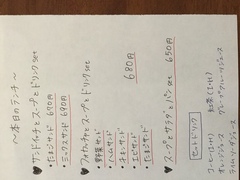 ～本日のランチ～
♥サンドイッチとスープとドリンクset
・たまごサンド 690円
・ミックスサンド 690円
♥フォカッチャとスープとドリンクset
680円
・野菜サンド
・ハムサンド
・チキンサンド
・エビサンド
・たまごサンド
♥スープとサラダとパンset 650円
セットドリンク
コーヒー(ICE, HOT) 紅茶(ICE, HOT)
オレンジジュース グレープフルーツジュース
ライムソーダジュース